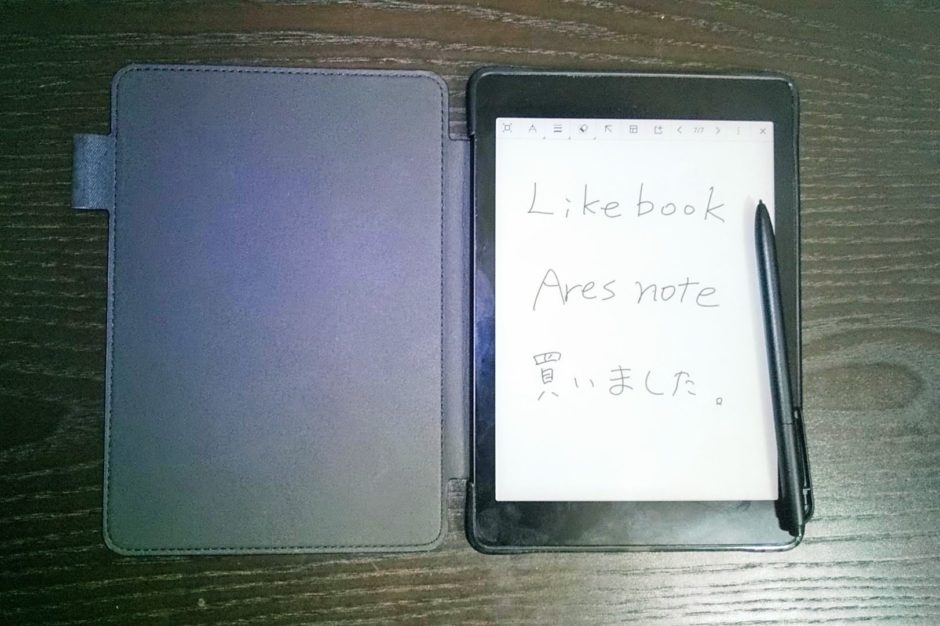 Likebook
Ares note
買いました。